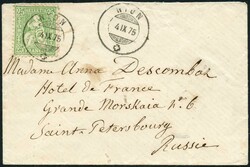 NYON
4 IX 75
NYON
4 IX 75
Madame Anna Descombaz
Hotel de France
Grande Morskaia No. 6
Saint-Petersbourg
Russie